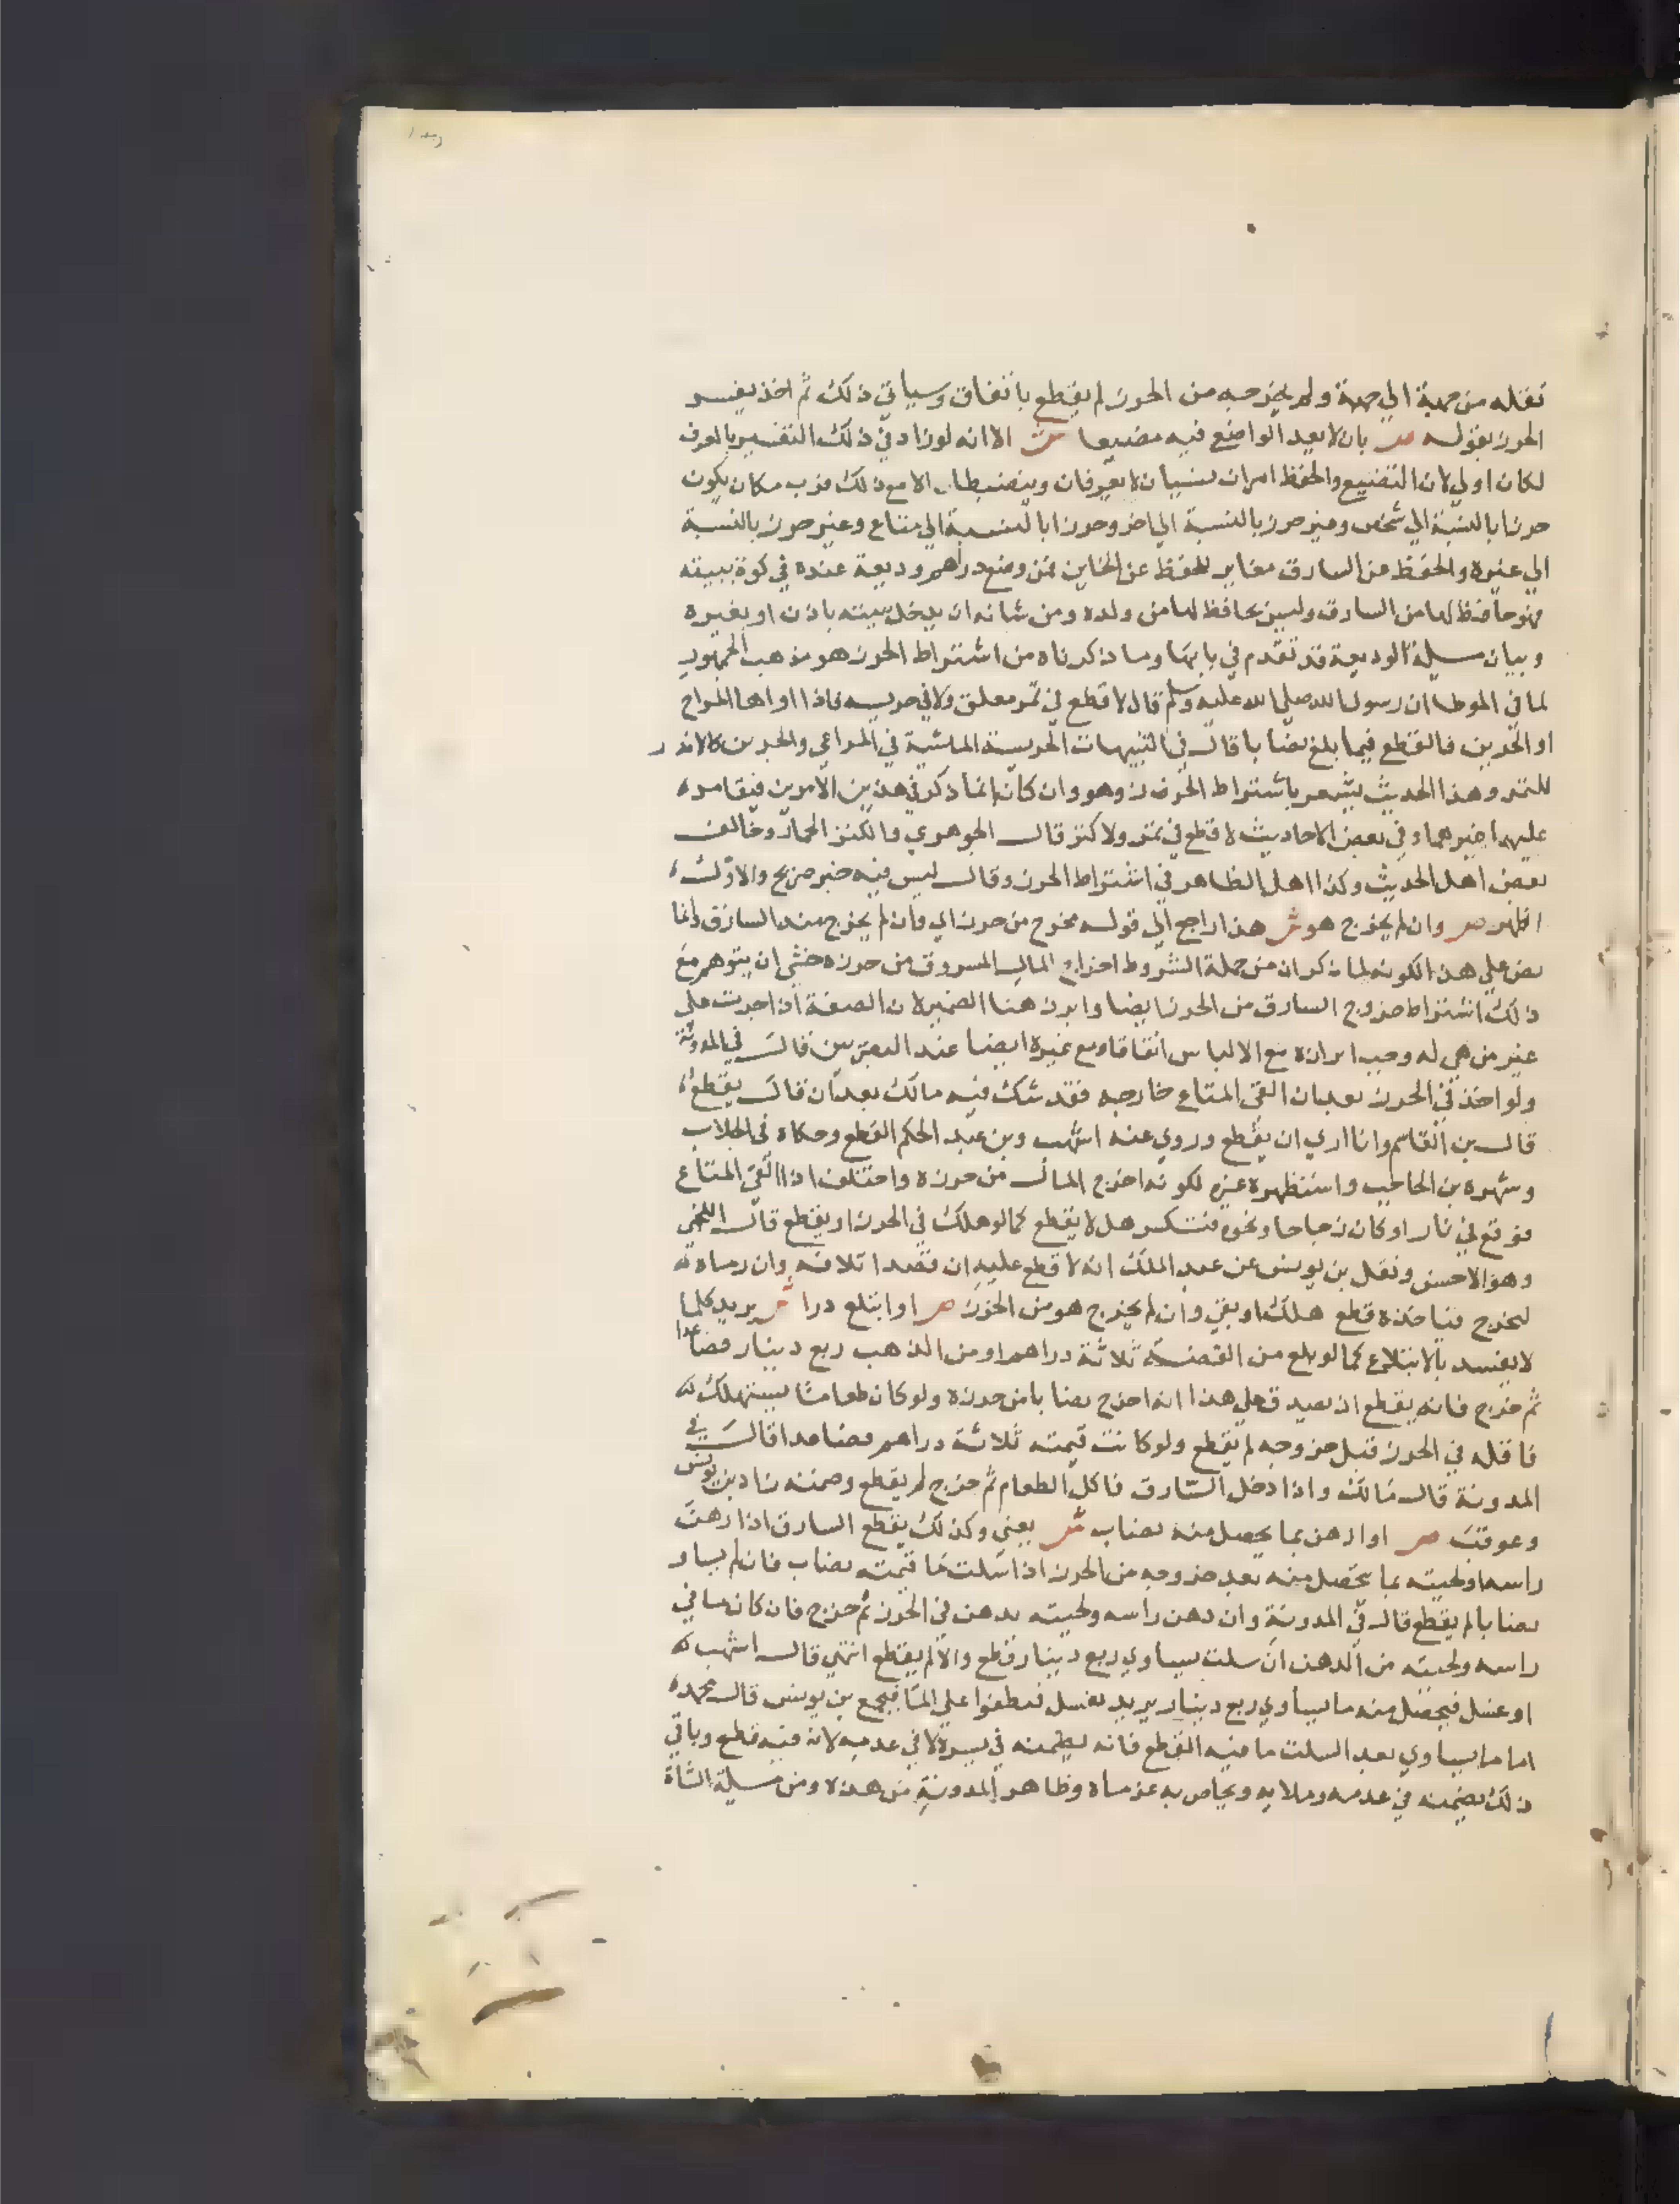 نقله من جهة الي جهة ولم يخرجه من الحرز لم يقطع باتفاق وسياتي ذلك ثم اخذ يفسر
الحرز بقوله ص بان لا يعد الواضع فيه مضيعا ش الا انه لو زاد في ذلك التفسير بالعرف
لكان اولي لان التضييع والحفظ امران نسبيان لا يعرفان وينضبطان الا مع ذلك فرب مكان يكون
حرزا بالنسبة الي شخص وغير حرز بالنسبة الي اخر وحرزا بالنسبة الي متاع وغير حرز بالنسبة
الي غيره والحفظ عن السارق مغاير للحفظ عن الخاين فمن وضع دراهم وديعة عنده في كوة ببيته
فهو حافظ لها من السارق وليس بحافظ لها من ولده ومن شانه ان يدخل بيته باذن او بغيره
وبيان مسيلة الوديعة قد تقدم في بابها وما ذكرناه من اشتراط الحرز هو مذهب الجمهور
لما في الموطا ان رسول الله صلي الله عليه وسلم قال لا قطع في ثمر معلق ولا في حريسه فاذا اواها المراح
او الجرين فالقطع فيما بلغ نصابا قال في التنبيهات الحريسة الماشية في المراعي والجرين كالاندر
للتمر وهذا الحديث يشعر باشتراط الحرز وهو وان كان انما ذكر في هذين الامرين فيقاس
عليهما غيرهما وفي بعض الاحاديث لا قطع في ثمر ولا كثر قال الجوهري والكثر الجمار وخالف
بعض اهل الحديث وكذا اهل الظاهر في اشتراط الحرز وقال ليس فيه خبر صريح والاول
اظهر ص وان لم يخرج هو ش هذا راجع الي قوله مخرج من حرز اي وان لم يخرج منه السارق وانما
نص علي هذا لكونه لما ذكر ان من جملة الشروط اخراج المال المسروق من حرزه خشي ان يتوهم مع
ذلك اشتراط خروج السارق من الحرز ايضا وابرز هنا الضمير لان الصفة اذا جرت علي
غير من هي له وجب ابرازه مع الالباس اتفاقا ومع غيره ايضا عند البصريين قال في المدونة
ولو اخذ في الحرز بعد ان القي المتاع خارجه فقد شك فيه مالك بعد ان قال يقطع
قال بن القاسم وانا اري ان يقطع وروي عنه اشهب وبن عبد الحكم القطع وحكاه في الجلاب
وشهره بن الحاجب واستظهره غيره لكونه اخرج المال من حرزه واختلف اذا القي المتاع
فوقع في نار او كان زجاجا ونحوه فتكسر هل لا يقطع كما لو هلك في الحرز او يقطع قال اللخمي
وهو الاحسن ونقل بن يونس عن عبد الملك انه لا قطع عليه ان قصد اتلافه وان رماه
ليخرج فياخذه قطع هلك او بقي وان لم يخرج هو من الحرز ص او ابتلع درا ش يريد كلما
لا يفسد بالابتلاع كما لو بلع من الفضة ثلاثة دراهم او من الذهب ربع دينار فصاعدا
ثم خرج فانه يقطع اذ يصدق علي هذا انه اخرج نصابا من حرزه ولو كان طعاما يستهلك
فاكله في الحرز قبل خروجه لم يقطع ولو كانت قيمته ثلاثة دراهم فصاعدا قال في
المدونة قال مالك واذا دخل السارق فاكل الطعام ثم خرج لم يقطع وضمنه زاد بن يونس
وعوقب ص او ادهن بما يحصل منه نصاب ش يعني وكذلك يقطع السارق اذا دهن
راسه او لحيته بما يحصل منه بعد خروجه من الحرز اذا سلت ما قيمته نصاب فان لم يساو
نصابا لم يقطع قال في المدونة وان دهن راسه ولحيته بدهن في الحرز ثم خرج فان كان ما في
راسه ولحيته من الدهن ان سلت يساوي ربع دينار قطع والا لم يقطع انتهي قال اشهب
او غسل فيحصل منه ما يساوي ربع دينار يريد بغسل فيطفوا علي الما فيجمع بن يونس قال محمد
اما ما يساوي بعد السلت ما فيه القطع فانه يضمنه في يسره لا في عدمه لانه فيه قطع وباقي
ذلك يضمنه في عدمه وملايه ويحاص به غرماه وظاهر المدونة من هذه ومن مسيلة الشاة